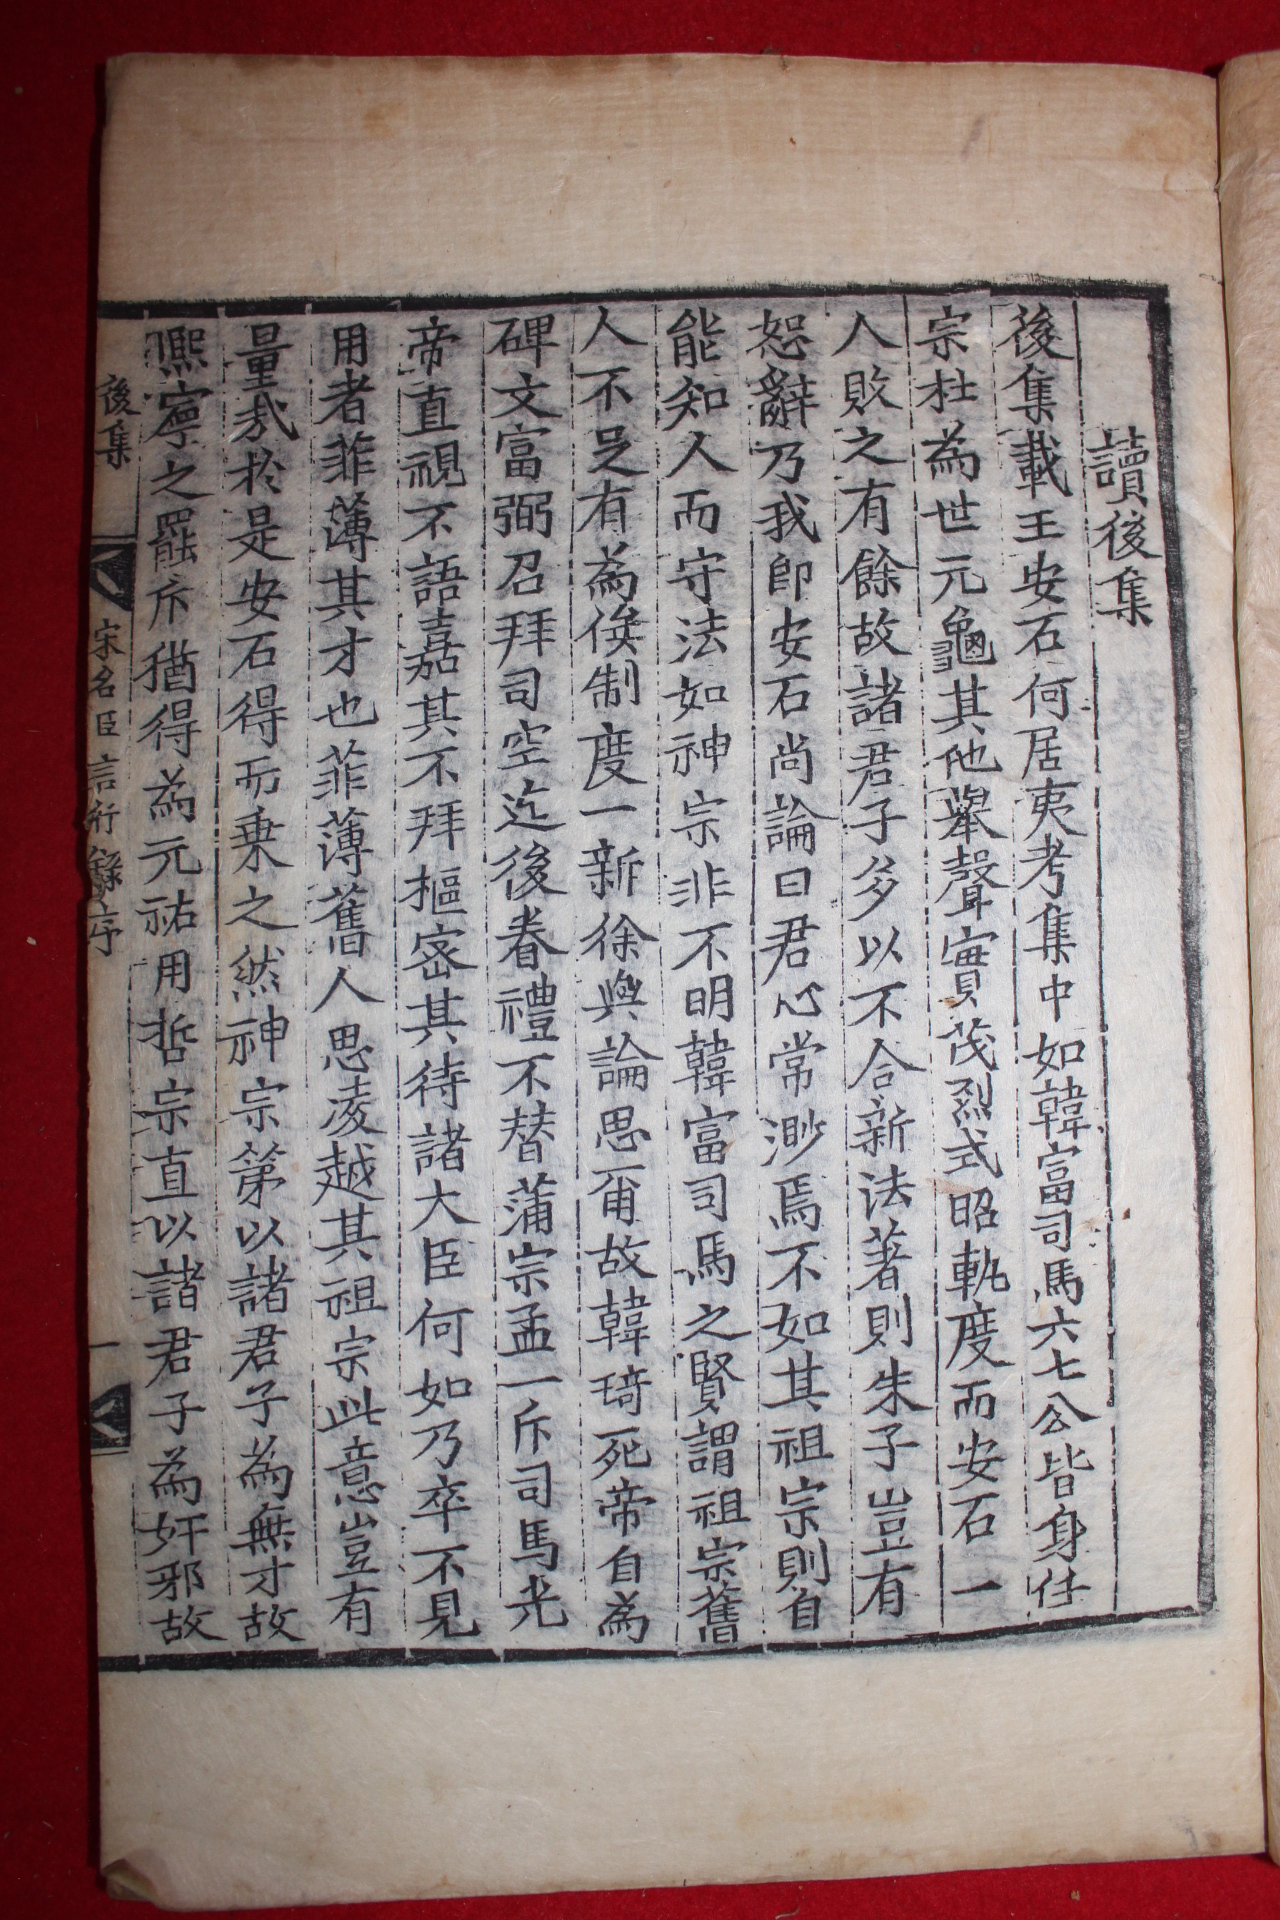 讀後集
後集載王安石何居夷考集中如韓富司馬六七公皆身任
宗杜為世元龜其他舉聲實茂烈式昭軌度而安石一
人敗之有餘故諸君子多以不合新法著則朱子豈有
恕辭乃我卽安石尚論曰君心常渺焉不如其祖宗則自
能知人而守法如神宗非不明韓富司馬之賢謂祖宗舊
人不足有為俟制度一新徐與論思爾故韓琦死帝自為
碑文富弼召拜司空迄後眷禮不替蒲宗孟一斥司馬光
帝直視不語嘉其不拜樞密其待諸大臣何如乃卒不見
用者菲薄其才也菲薄舊人思凌越其祖宗此意豈有
量哉於是安石得而乗之然神宗第以諸君子為無才故
熙寧之罷斥猶得為元祐用哲宗直以諸君子為奸邪故
後集
宋名臣言行錄序
一